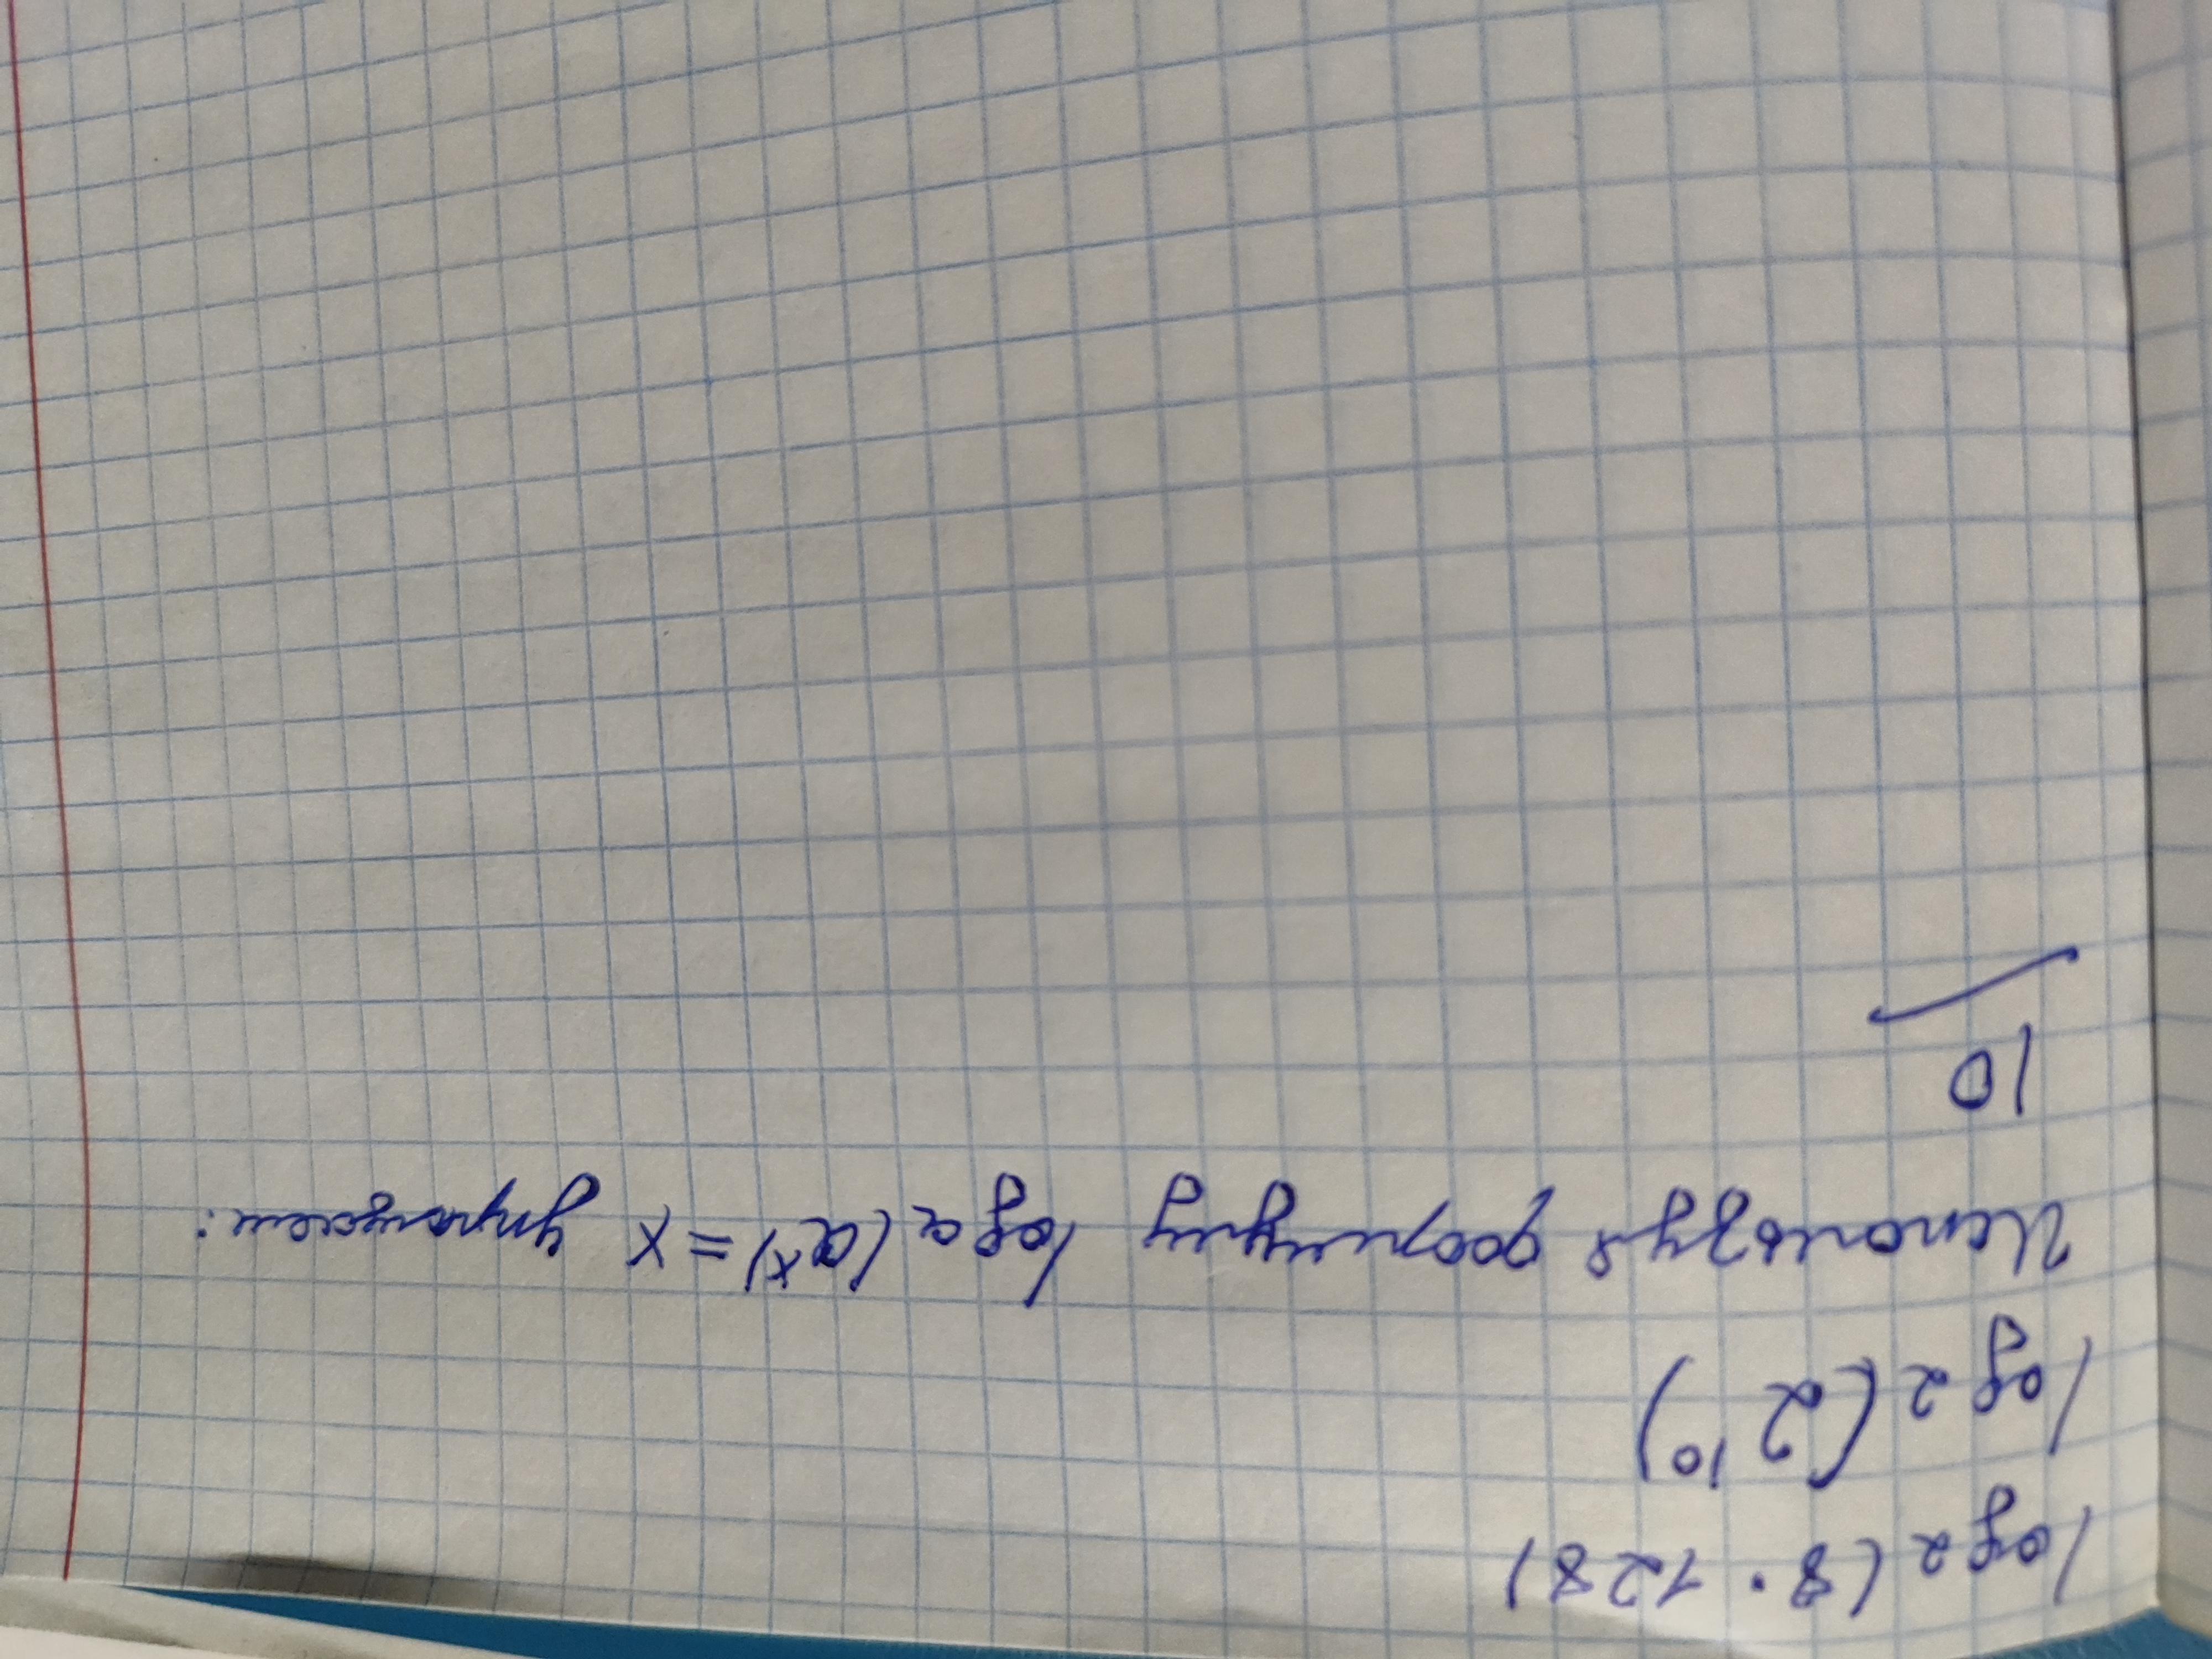 log2(8·128)
log2(2¹⁰)
Используя формулу loga(aˣ)=x упрощаем:
10